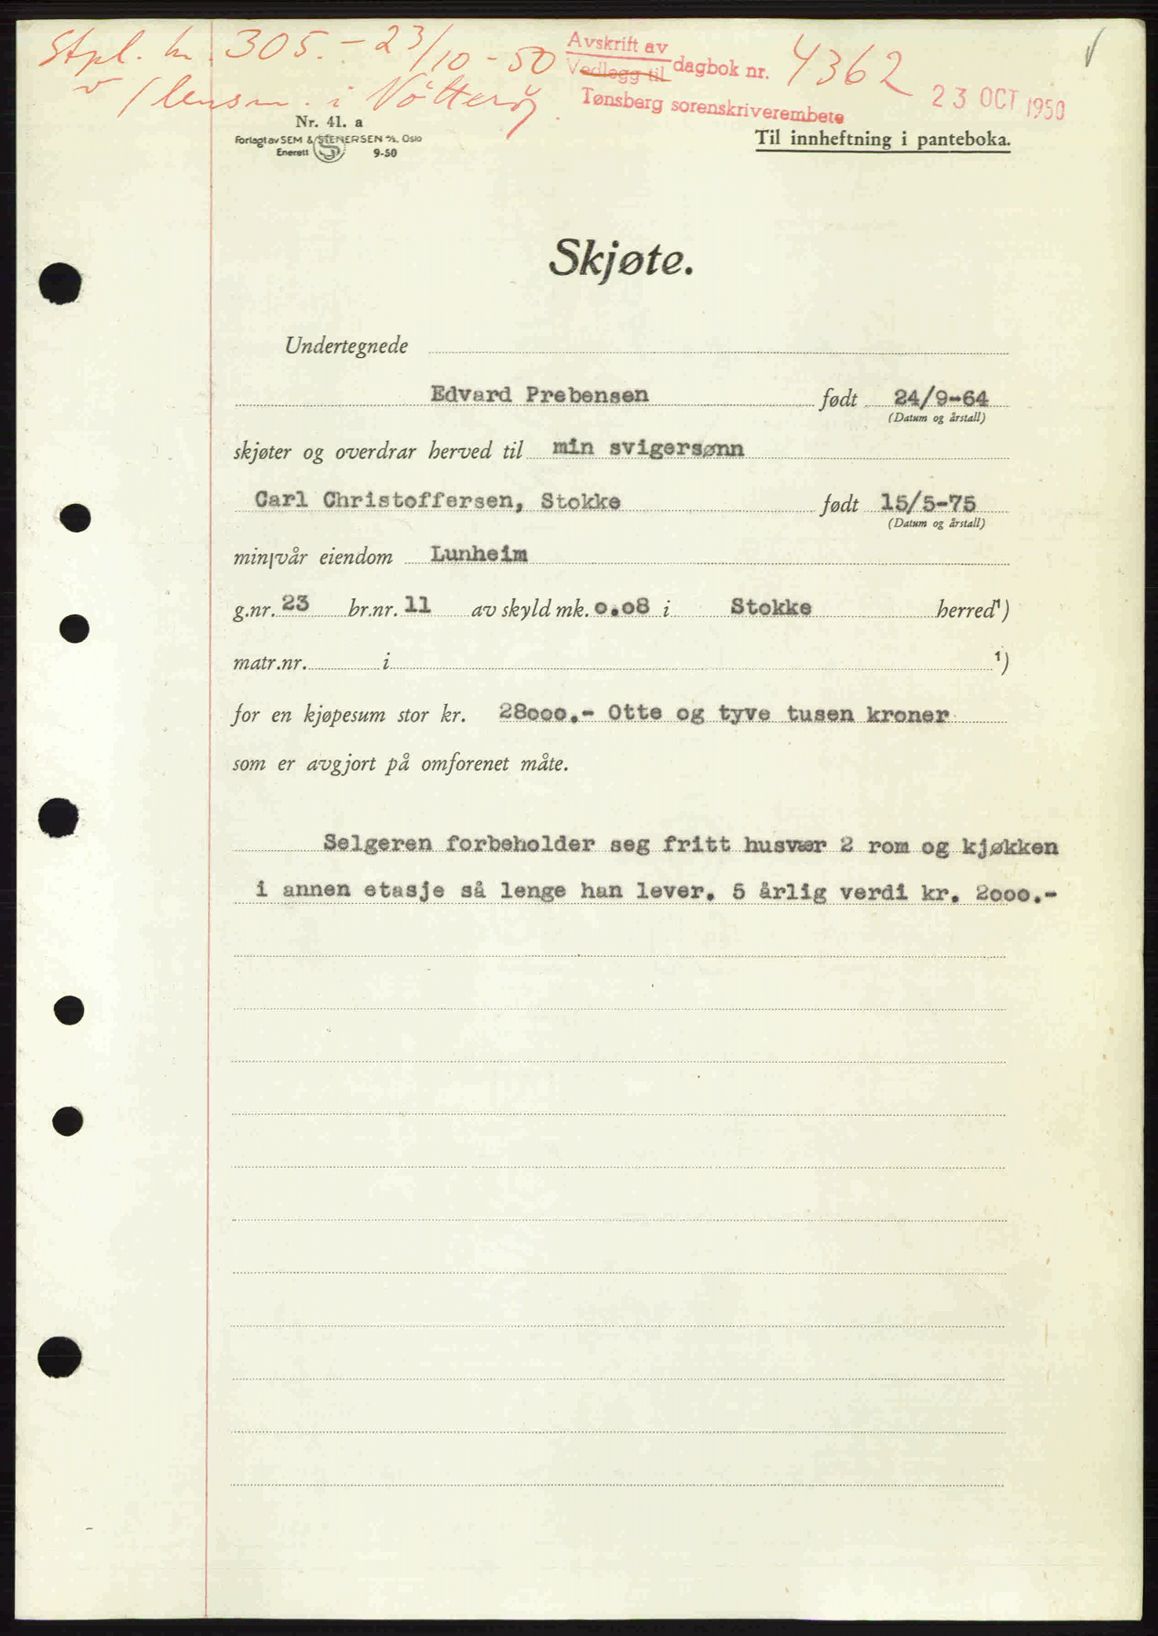 Stpl. kr. 305.- 23/10-50
v/lensm. i Nøtterøy.
Avskrift av
Vedlegg til dagbok nr. 4362
Tønsberg sorenskriverembete
23 OCT 1950
Nr. 41. a
Forlagt av SEM & STENERSEN A/S. Oslo
Enerett 9-50
Til innheftning i panteboka.
Skjøte.
Undertegnede
Edvard Prebensen født 24/9-64
(Datum og årstall)
skjøter og overdrar herved til min svigersønn
Carl Christoffersen, Stokke født 15/5-75
(Datum og årstall)
min|vår eiendom Lunheim
g.nr. 23 br.nr. 11 av skyld mk. 0.08 i Stokke herred¹)
matr.nr. i ¹)
for en kjøpesum stor kr. 28000.- Otte og tyve tusen kroner
som er avgjort på omforenet måte.
Selgeren forbeholder seg fritt husvær 2 rom og kjøkken
i annen etasje så lenge han lever. 5 årlig verdi kr. 2000.-